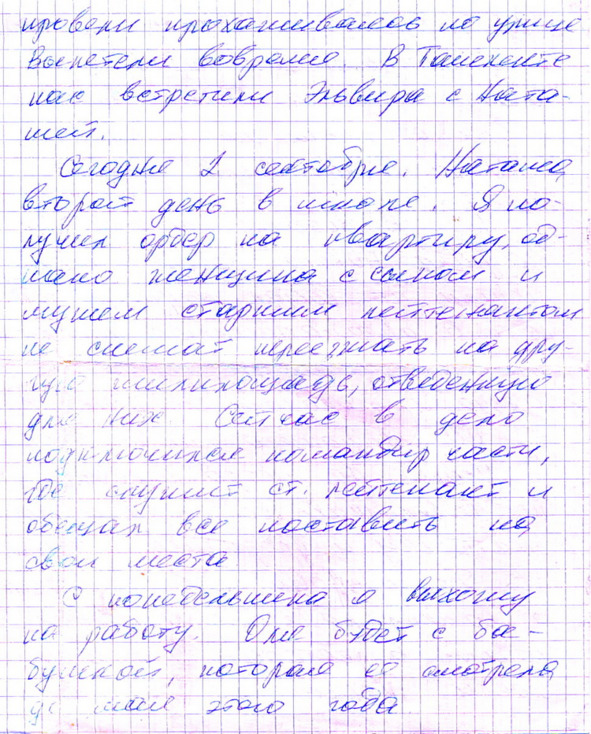 провели прохаживаясь по улице
Вылетели вовремя. В Ташкенте
нас встретили Эльвира с Ната-
шей.
Сегодня 2 сентября. Наташа
второй день в школе. Я по-
лучил ордер на квартиру, од-
нако женщина с сыном и
мужем старшим лейтенантом
не спешат переезжать на дру-
гую жилплощадь, отведенную
для них. Сейчас в дело
подключился командир части,
где служит ст. лейтенант и
обещал все поставить на
свои места
С понедельника я выхожу
на работу. Оля будет с ба-
бушкой, которая ее смотрела
до мая этого года.